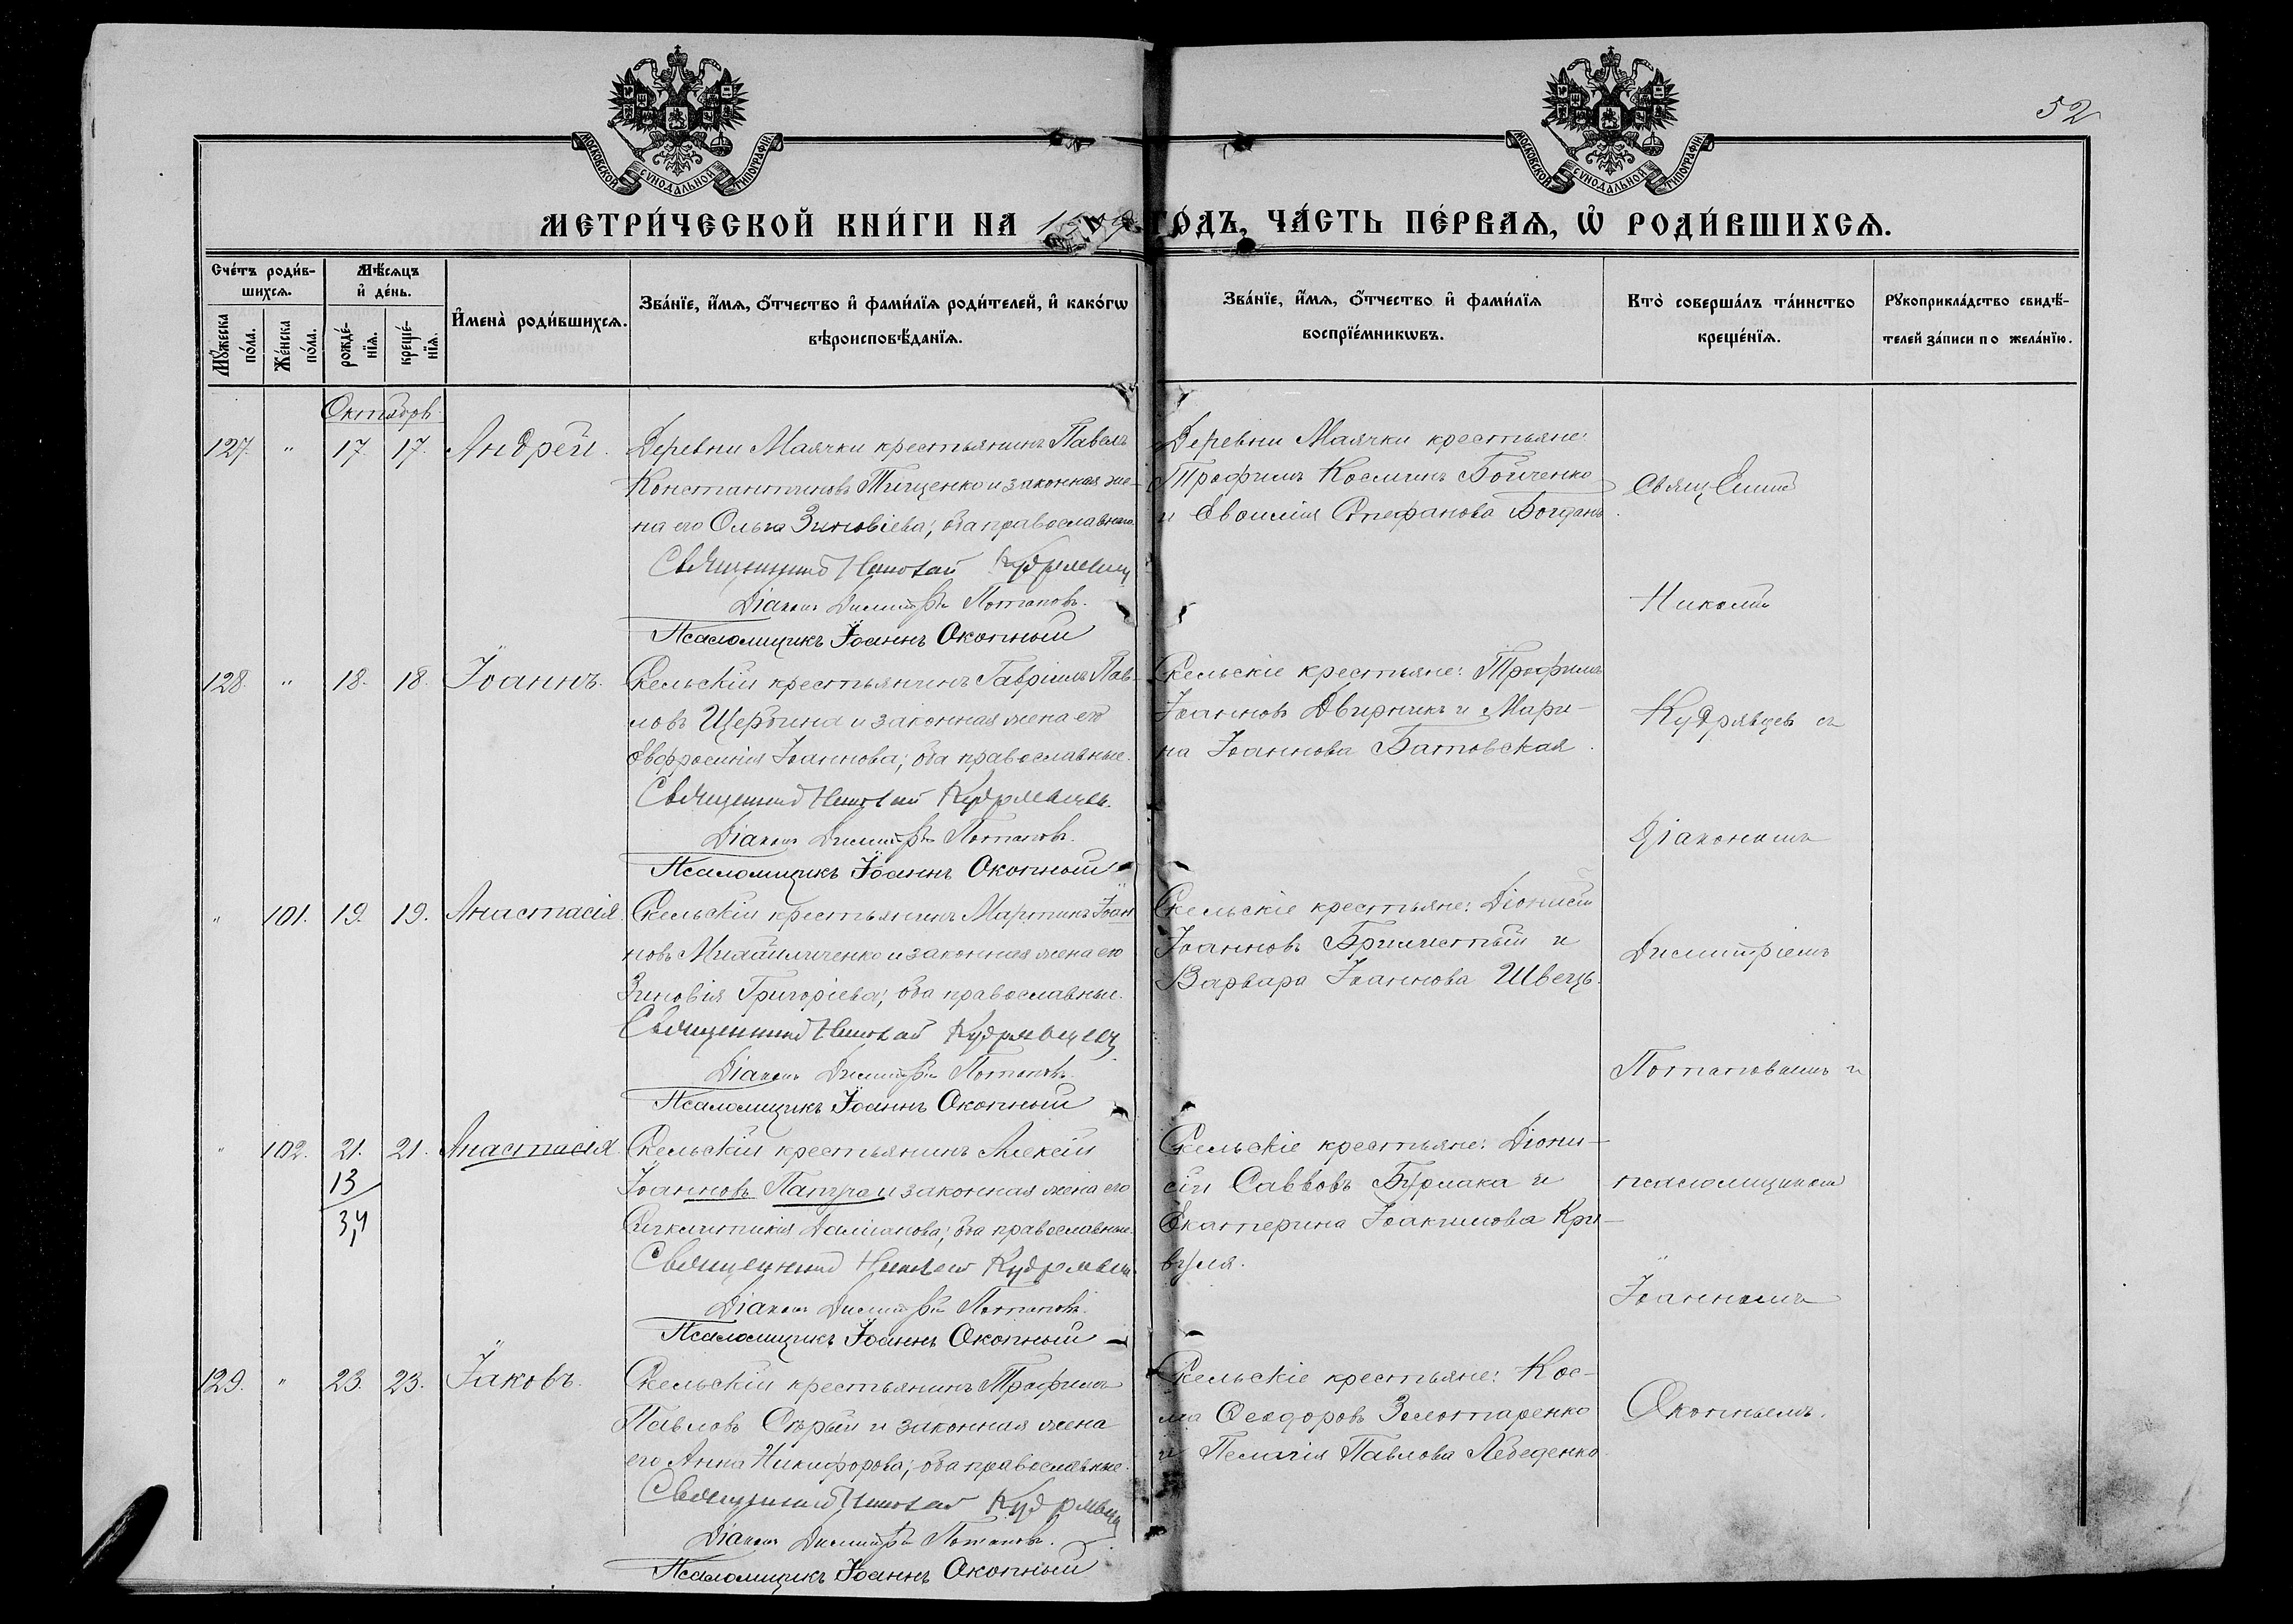 52
МОСКОВСКОЙ СѴНОДАЛЬНОЙ ТИПОГРАФІИ.
МОСКОВСКОЙ СѴНОДАЛЬНОЙ ТИПОГРАФІИ.
МЕТРИ́ЧЕСКОЙ КНИ́ГИ НА ГО́ДЪ, ЧА́СТЬ ПЕ́РВАѦ, Ѡ҆ РОДИ́ВШИХСѦ.
Сче́тъ роди́в-
шихсѧ.
Мѣ́сѧцъ
и҆ де́нь.
Мꙋ́жеска
по́ла.
Же́нска
по́ла.
рожде́-
нїѧ.
креще́-
нїѧ.
И҆мена̀ роди́вшихсѧ.
Зва́нїе, и҆́мѧ, ѻ҆́тчество и҆ фами́лїѧ роди́телей, и҆ како́гѡ
вѣроисповѣ́данїѧ.
Зва́нїе, и҆́мѧ, ѻ҆́тчество и҆ фами́лїѧ
воспрїе́мникѡвъ.
Кто̀ соверша́лъ та́инство
креще́нїѧ.
Рꙋкоприкла́дство свидѣ́-
телей за́писи по жела́нїю.
Октябрь
127. " 17. 17. Андрей.
Деревни Маячки крестьянинъ Павелъ
Константиновъ Тищенко и законная же-
на его Ольга Зиновіева; оба православные.
Священникъ Николай Кудрявцев
Діаконъ Димитрій Потаповъ.
Псаломщикъ Іоаннъ Окопный
Деревни Маячки крестьяне:
Трофимъ Косминъ Бойченко
и Евѳимія Стефанова Богданъ.
Священник
Николай
128. " 18. 18. Іоаннъ.
Скельскій крестьянинъ Гавріилъ Пав-
ловъ Щербина и законная жена его
Евфросинія Іоаннова; оба православные.
Священникъ Николай Кудрявцевъ.
Діаконъ Димитрій Потаповъ.
Псаломщикъ Іоаннъ Окопный
Скельскіе крестьяне: Трофимъ
Іоанновъ Двирникъ и Мари-
на Іоаннова Батовская.
Кудрявцев съ
Діакономъ
" 101. 19. 19. Анастасія.
Скельскій крестьянинъ Мартинъ Іоан
новъ Михайличенко и законная жена его
Зиновія Григоріева; оба православные.
Священникъ Николай Кудрявцев
Діаконъ Димитрій Потаповъ.
Псаломщикъ Іоаннъ Окопный
Скельскіе крестьяне: Діонисій
Іоанновъ и
Варвара Іоаннова Швецъ.
Димитріемъ
Потаповымъ и
" 102. 21. 21. Анастасія.
13
34
Скельскій крестьянинъ Алексій
Іоанновъ Папуга и законная жена его
Синклитикія Даміанова; оба православные.
Священникъ Николай Кудрявцев
Діаконъ Димитрій Потаповъ.
Псаломщикъ Іоаннъ Окопный
Скельскіе крестьяне: Діони-
сій Саввовъ Бурлака и
Екатерина Іоакимова Кри-
вуля.
псаломщиком
Іоанномъ
129. " 23. 23. Іаковъ.
Скельскій крестьянинъ Трофимъ
Павловъ Сѣрый и законная жена
его Анна Никифорова; оба православные.
Священникъ Николай Кудрявцев
Діаконъ Димитрій Потаповъ.
Псаломщикъ Іоаннъ Окопный
Скельскіе крестьяне: Кос-
ма Ѳеодоровъ Золотаренко
и Пелагія Павлова Лебеденко.
Окопнымъ.